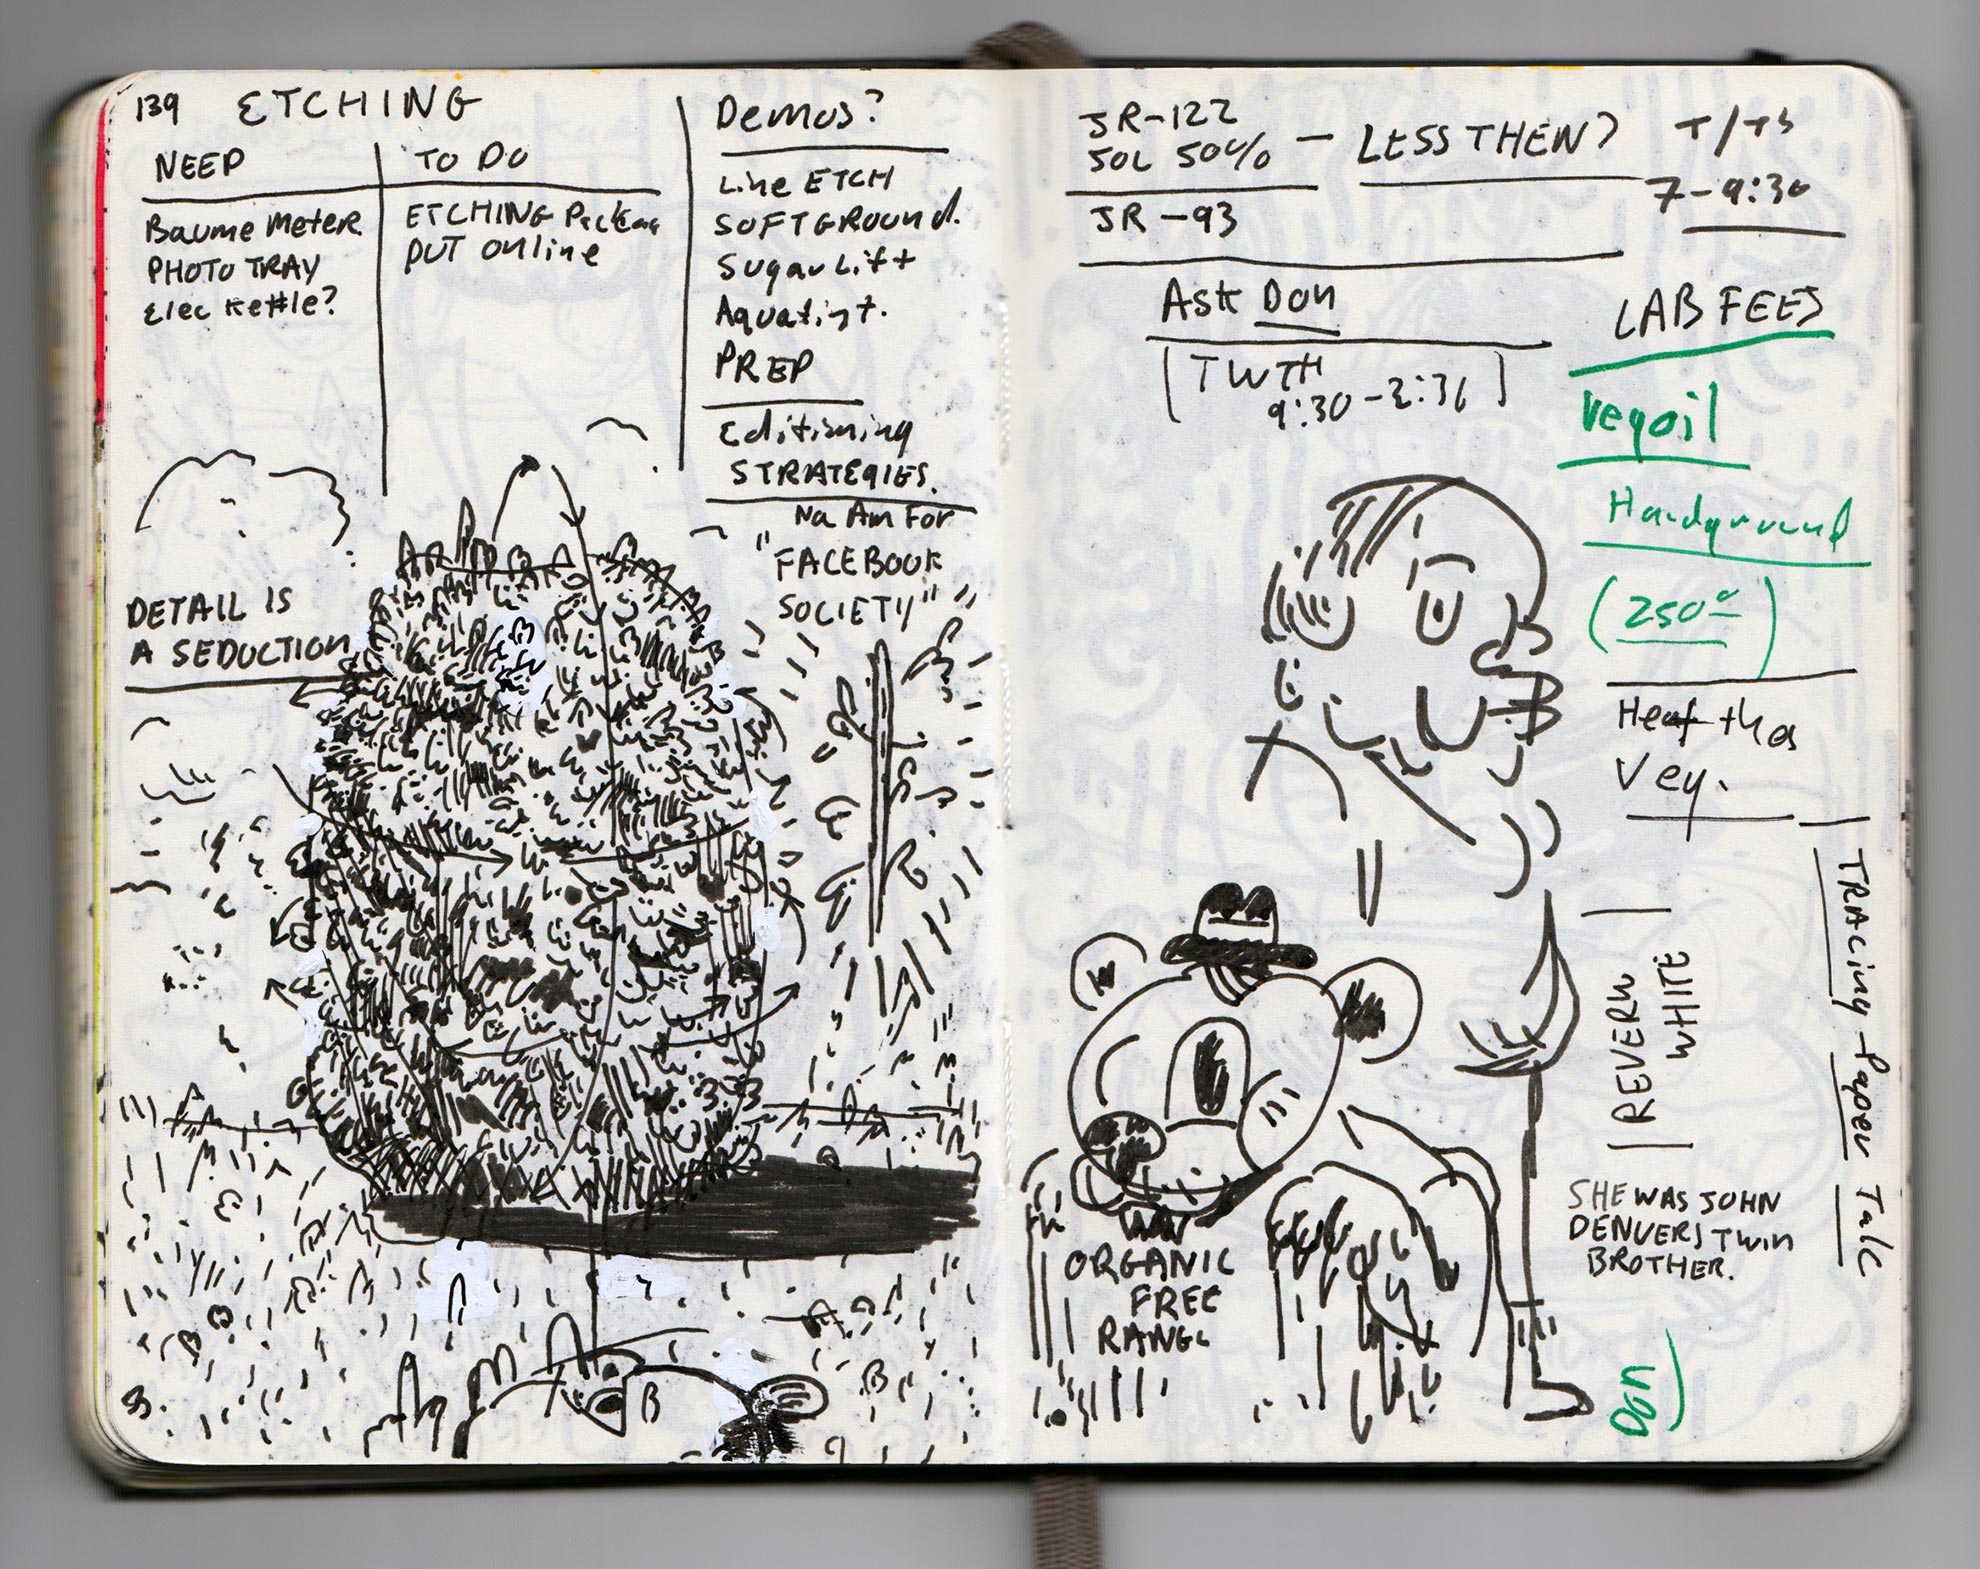 139 ETCHING
NEED
Baume Meter
PHOTO TRAY
Elec kettle?
TO DO
ETCHING Packag
PUT online
Demos?
Line ETCH
SOFTGROUND.
Sugar Lift
Aquatint.
PREP
Editioning
STRATEGIES.
Na Am For
"FACEBOOK
SOCIETY"
DETAIL IS
A SEDUCTION
JR-122
50% - LESS THEN?
JR-93
T/TH
7-9:30
Ask Don
[TWTH
9:30-2:31]
LAB FEES
Vegoil
Hardground
(250°)
Heat the
Veg.
TRACING Paper Talc
WHITE
ORGANIC
FREE
RANGE
SHE WAS JOHN
DENVERS TWIN
BROTHER.
Don